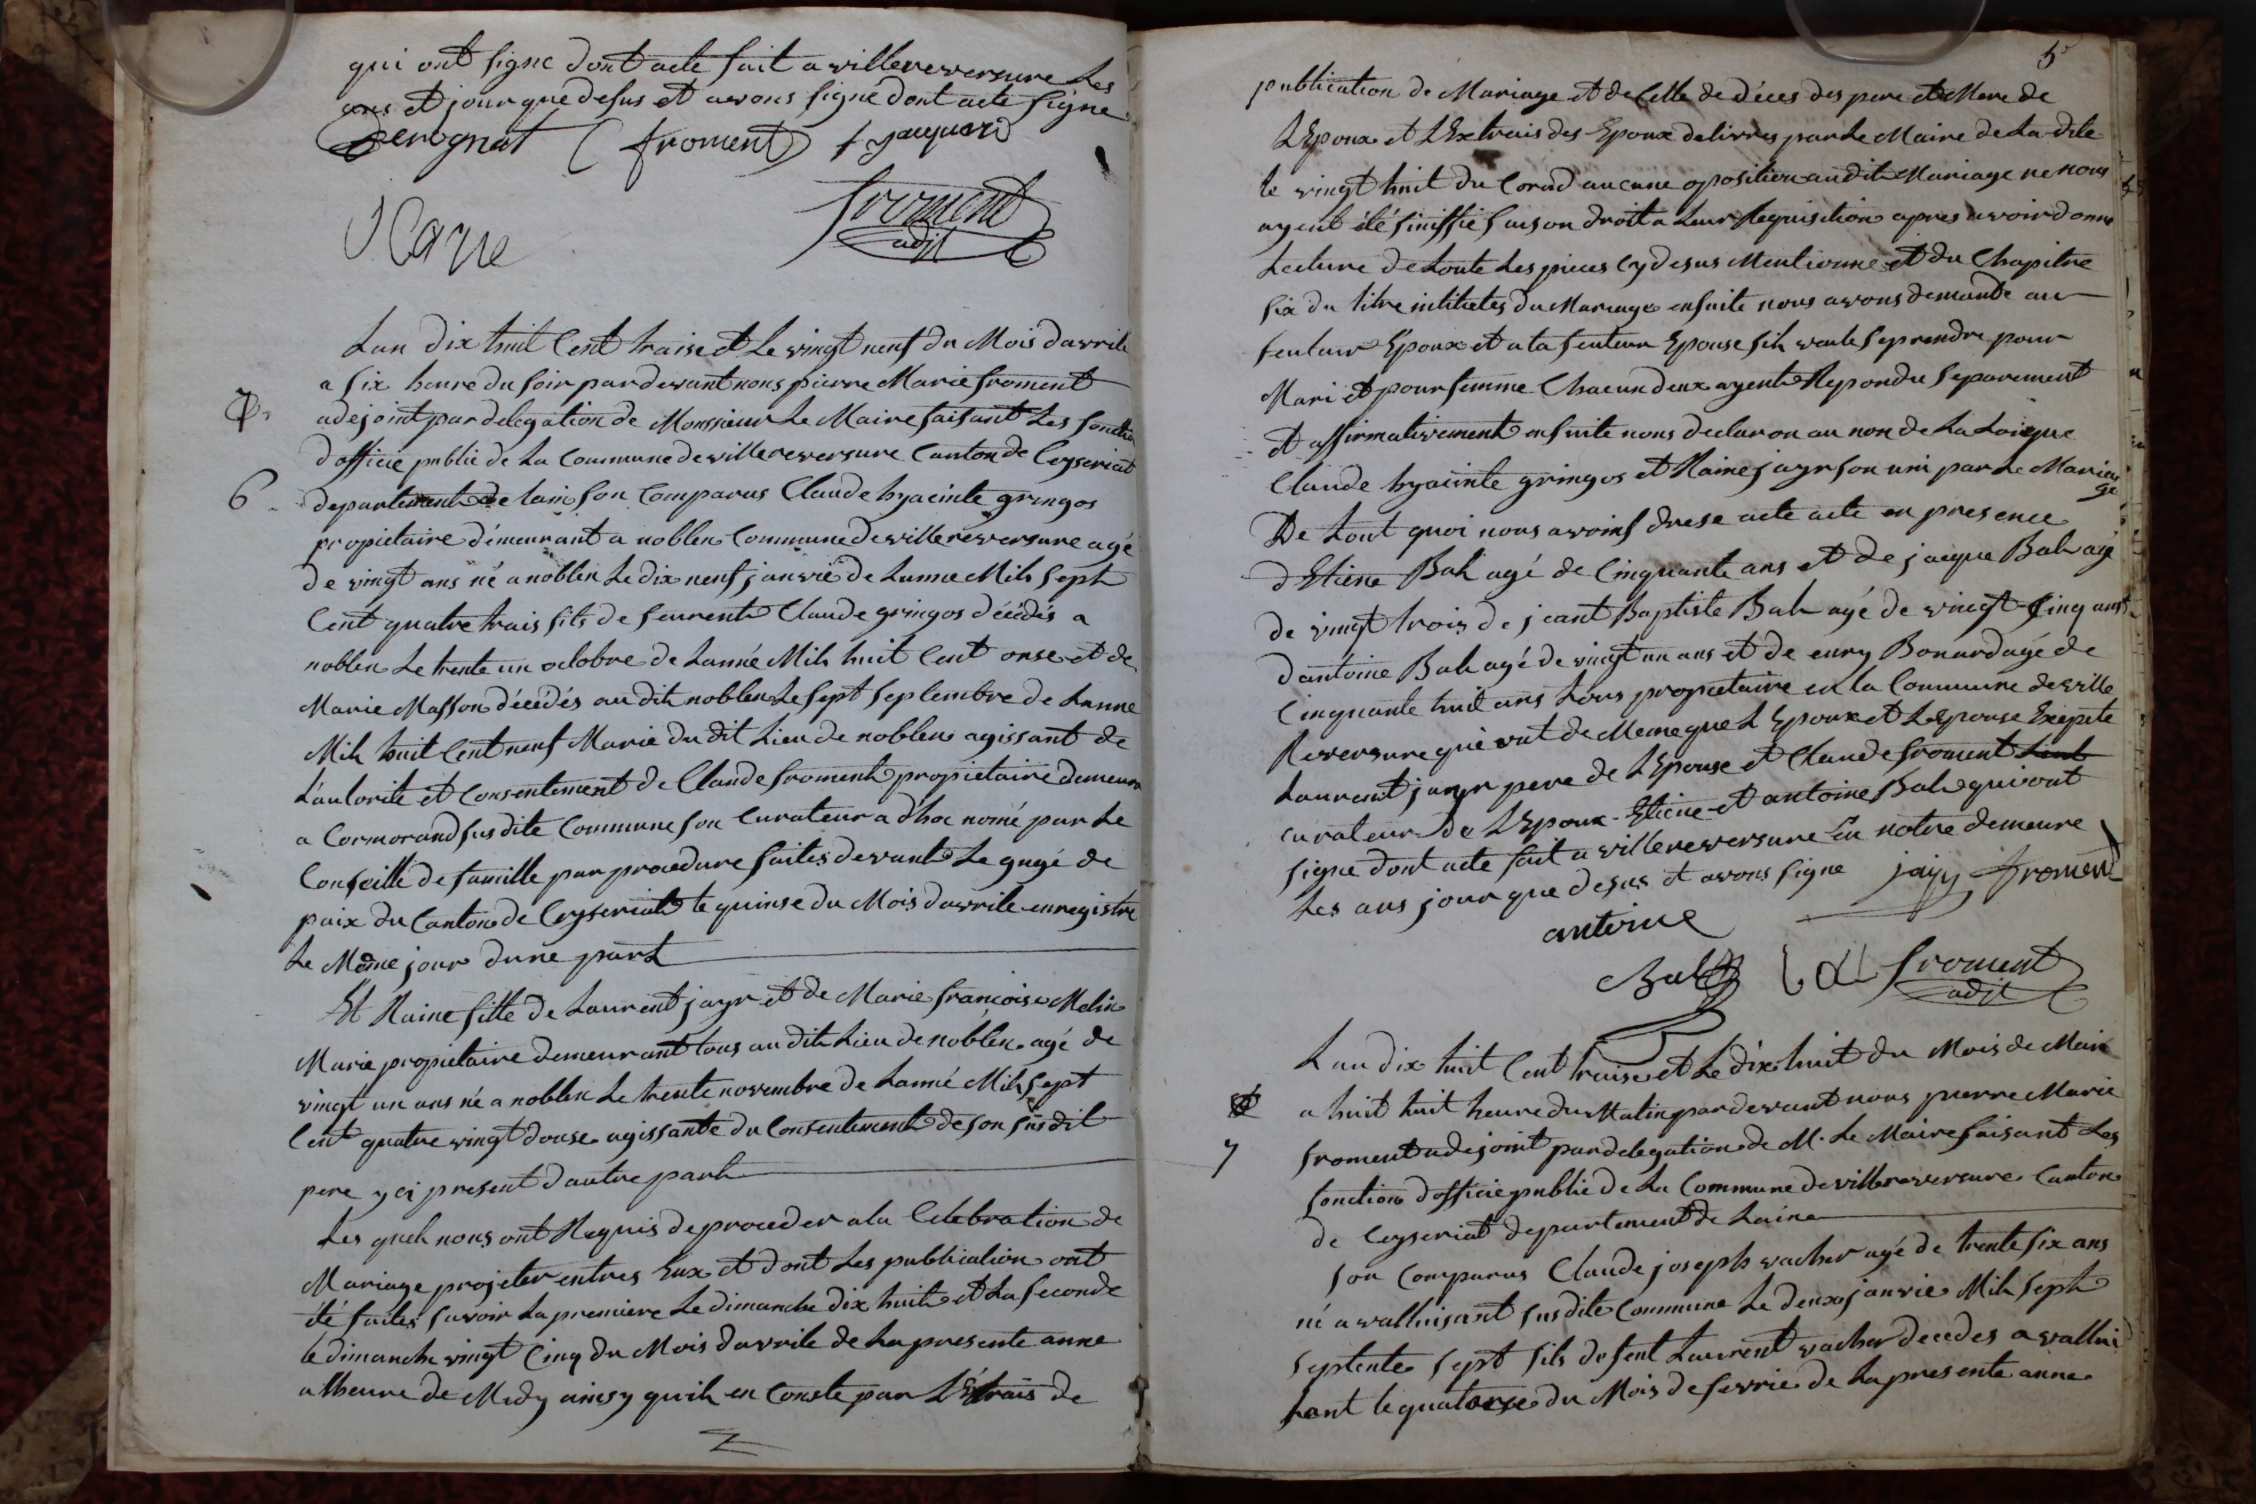 qui ont signe dont acte fait a villereversure Les
ans et jour que desus et avons signe dont acte signe
Derognat froment f jacquard
Carre
froment
adjt
Lan dix huit Cent traise et Le vingt neuf du Mois davrile
a six heure du soir par devant nous pierre Marie froment
adejoint par delegation de Monssieur Le Maire faisant Les fonction
6 dofficie public de La Commune de villereversure Canton de Ceyseriat
departement de lain son Comparus Claude hyacinte gringos
propietaire démeurant a noblen Commune de villereversure agé
de vingt ans né a noblen Le dix neuf janvié de Lanne Mih Sept
Cent quatre trais fils de feurent Claude gringos décédés a
noblen Le trente un octobre de Lannée Mih huit Cent onse et de
Marie Masson décédés au dit noblen Le sept Septembre de Lanne
Mih huit Cent neuf Marié du dit Lieu de noblen agissant de
Lautorite et Consentement de Claude froment propietaire demeura
a Cormorand sus dite Commune son Curateur a d'hoc nomé par Le
Conseille de famille par procedure faites devant Le gugé de
paix du Canton de Ceyseriat le quinse du Mois davrile enregistre
Le Même jour dune part
Et Raine fille de Laurent jayr et de Marie francoise Melin
Marié propietaire demeurant tous au dit Lieu de noblen agé de
vingt un ans né a noblen Le trente novembre de Lanné Mih Sept
Cent quatre vingt douse agissante du Consentement de son susdit
pere y ci present dautre part
Les queh nous ont Requis de proceder a la Celebration de
Mariage projeter entres Eux et dont Les publication ont
été faites savoir La premiere Le dimanche dix huit et La Seconde
le dimanche vingt Cinq du Mois davrile de La presente anne
a lheure de Midy ainsy quih en Conste par LExtrais de
5
publication de Mariage et de Celle de déces des pere et Mere de
LEpoux et LExtrais des Epoux delivres par Le Maire de La dite
le vingt huit du Corand aucune oposition audit Mariage ne nous
ayent été sinissié faison droit a Leur Requisition apres avoir donne
Lecture de toute Les pieces Cy desus Mentionne et du Chapitre
six du titre intitules du Mariage ensuite nous avons demande au
feuteur Epoux et a la feuteur Epouse sih veule se prendre pour
Mari et pour femme Chacun deux ayent Repondu Separement
et affirmativement ensuite nous declaron au non de La Loi que
Claude hyacinte gringos et Raine jayr son uni par Le Maria
ge
De tout quoi nous avoins drese acte acte en presence
dEtiene Bah agé de Cinquante ans et de jacque Bah agé
de vingt trois de jeant Baptiste Bah agé de vingt Cinq ans
dantoine Bah agé de vingt un ans et de enry Bonard agé de
Cinquante huit ans tous propietaire en la Commune de ville
Reversure qui ont de Meme que LEpoux et LEpouse Exepte
Laurent jayr pere de LEpouse et Claude froment
curateur de LEpoux Etiene et antoine Bah qui ont
signe dont acte fait a villereversure En notre demeure
Les ans jour que desus et avons signe jayr froment
antoine
Bal froment
adjt
Lan dix huit Cent traise et Le dix huit du Mois de Mai
a huit huit heure du Matin par devant nous pierre Marie
7 froment adejoint par delegation de M. Le Maire faisant Les
fonction dofficie public de La Commune de villereversure Canton
de Ceyseriat departement de Laine
son Comparus Claude joseph vacher agé de trente six ans
né a valluisant sus dite Commune Le deux janvié Mih Sept
septente sept fils de feut Laurent vacher decedes a vallui
sant le quatorse du Mois de fevrié de La presente anne